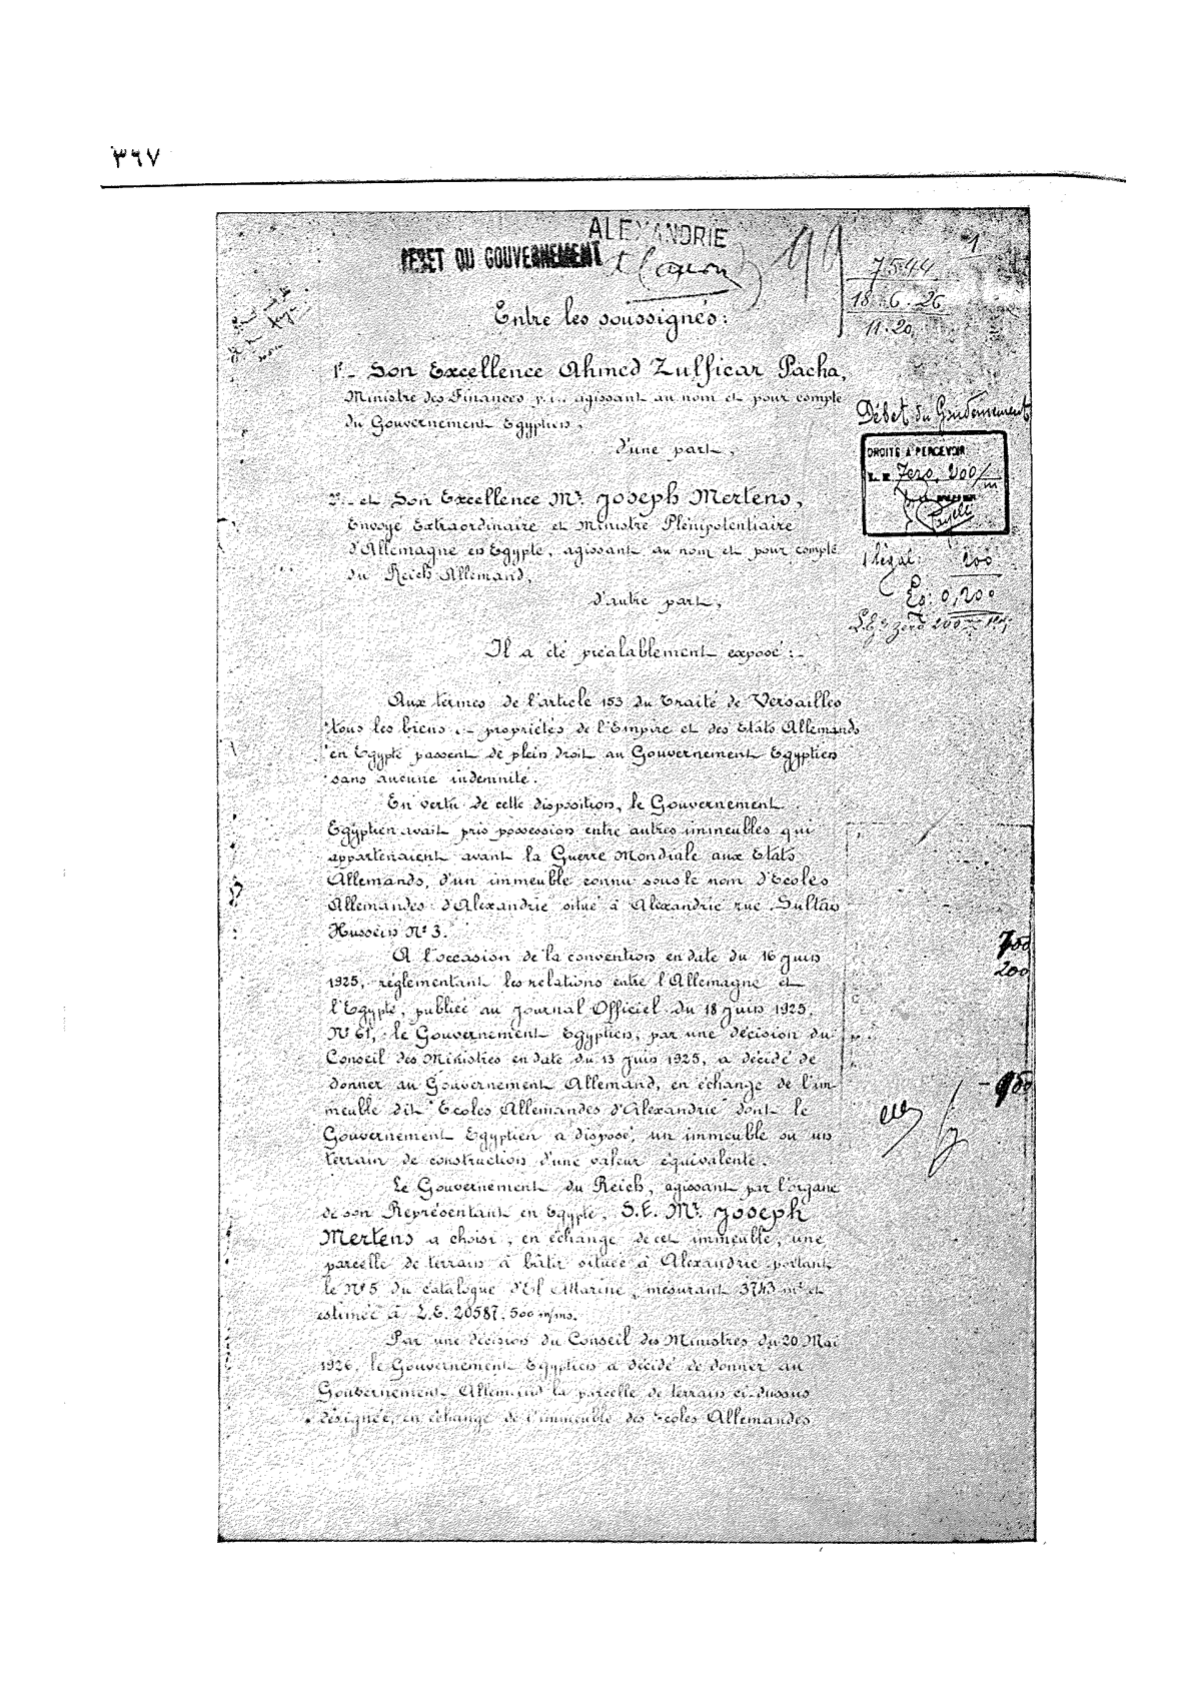 ٣٦٧
ALEXANDRIE
DEBET DU GOUVERNEMENT
99
1
7544
18.6.26
11.20
Entre les soussignés:
1º_ Son Excellence Ahmed Zulficar Pacha,
Ministre des Finances p.i., agissant au nom et pour compte
du Gouvernement Egyptien,
d'une part,
Débet du Gouvernement
DROITS A PERCEVOIR
L.E. Zero, 200/m
2º_ et Son Excellence Mr. Joseph Mertens,
Envoyé Extraordinaire et Ministre Plénipotentiaire
d'Allemagne en Egypte, agissant au nom et pour compte
du Reich Allemand,
d'autre part,
légal: 200
0,200
L.E. zéro 200
Il a été préalablement exposé:_
Aux termes de l'article 153 du Traité de Versailles
tous les biens et propriétés de l'Empire et des Etats Allemands
en Egypte passent de plein droit au Gouvernement Egyptien
sans aucune indemnité.
En vertu de cette disposition, le Gouvernement
Egyptien avait pris possession entre autres immeubles qui
appartenaient avant la Guerre Mondiale aux Etats
Allemands, d'un immeuble connu sous le nom d'Ecoles
Allemandes d'Alexandrie situé à Alexandrie rue Sultan
Hussein Nº 3.
A l'occasion de la convention en date du 16 Juin
1925, réglementant les relations entre l'Allemagne et
l'Egypte, publiée au Journal Officiel du 18 Juin 1925,
Nº 61, le Gouvernement Egyptien, par une décision du
Conseil des Ministres en date du 13 Juin 1925, a décidé de
donner au Gouvernement Allemand, en échange de l'im-
meuble dit "Ecoles Allemandes d'Alexandrie" dont le
Gouvernement Egyptien a disposé, un immeuble ou un
terrain de construction d'une valeur équivalente.
700
200
900
Le Gouvernement du Reich, agissant par l'organe
de son Représentant en Egypte, S.E. Mr. Joseph
Mertens a choisi, en échange de cet immeuble, une
parcelle de terrain à bâtir située à Alexandrie portant
le Nº 5 du catalogue d'El Marine, mesurant 3743 m² et
estimée à L.E. 20587,500 m/ms.
Par une décision du Conseil des Ministres du 20 Mai
1926, le Gouvernement Egyptien a décidé de donner au
Gouvernement Allemand la parcelle de terrain ci-dessus
désignée, en échange de l'immeuble des Ecoles Allemandes